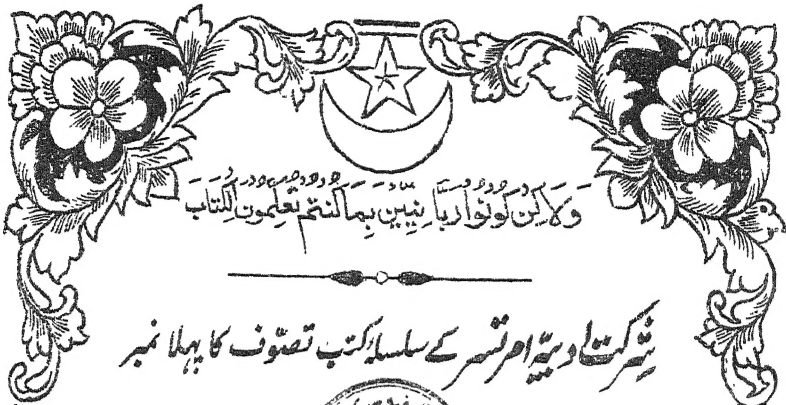 وَلَاكِن كُونُوا رَبَّانِيِّينَ بِمَا كُنتُم تُعَلِّمُونَ الْكِتَابَ
شرکت ادبیہ امرتسر کے سلسلہ کتب تصوّف کا پہلا نمبر